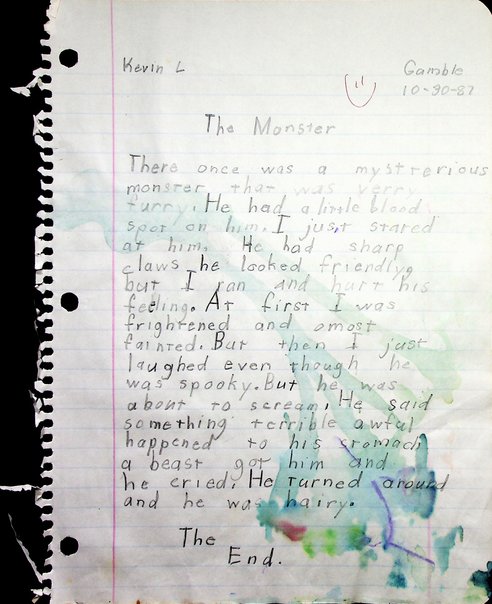 Kevin L
Gamble
10-30-87
The Monster
There once was a mysterious
monster that was verry
furry. He had a little blood
spot on him. I just stared
at him. He had sharp
claws he looked friendly,
but I ran and hurt his
feeling. At first I was
frightened and omost
fainted. But then I just
laughed even though he
was spooky. But he was
about to scream. He said
something terrible awful
happened to his stomach
a beast got him and
he cried. He turned around
and he was hairy.
The
End.